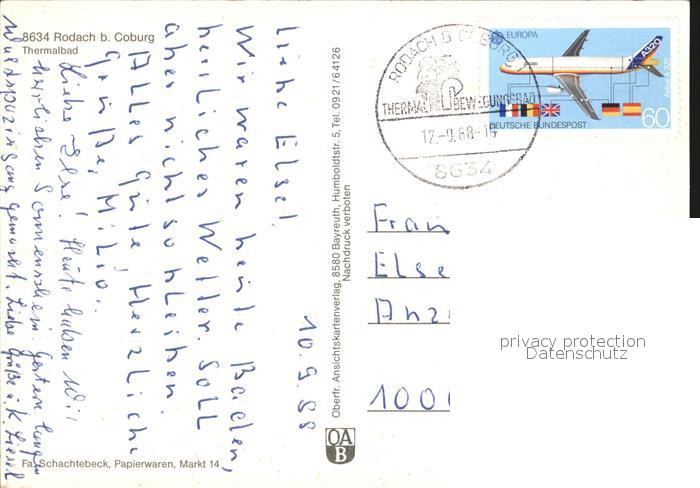 8634 Rodach b. Coburg
Thermalbad
10.9.88
Liebe Else!,
Wir waren heute Baden,
herrliches Wetter. Soll
aber nicht so bleiben.
Alles Gute, Herzliche
Grüße,
Liebe Else! Heute haben wir
herzlichen Sonnenschein. Gestern langen
Waldspaziergang gemacht. Liebe Grüße
Fa. Schachtebeck, Papierwaren, Markt 14
Oberfr. Ansichtskartenverlag, 8580 Bayreuth, Humboldtstr. 5, Tel. 0921/64126
Nachdruck verboten
OA
B
RODACH B COBURG
THERMAL BEWEGUNGSBAD
12.-9.88-
8634
EUROPA
A320
Airbus A 320
DEUTSCHE BUNDESPOST
60
Frau
Else
Anz
100
privacy protection
Datenschutz